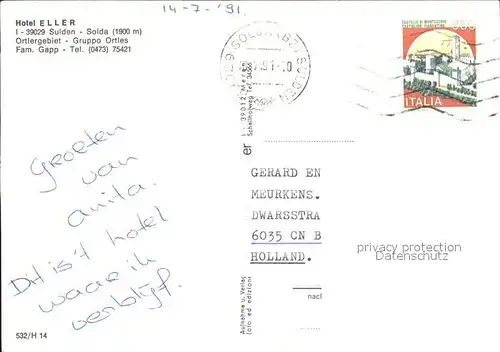 14-7-'91.
Hotel ELLER
I - 39029 Sulden - Solda (1900 m)
Ortlergebiet - Gruppo Ortles
Fam. Gapp - Tel. (0473) 75421
CASTELLO DI MONTECCHIO
CASTIGLION FIORENTINO
ITALIA
SULDEN
Groeten
van
anita.
Dit is 't hotel
waar ik
verblijf.
I - 39012 Meran
er
GERARD EN
MEURKENS.
DWARSSTRA
6035 CN B
HOLLAND.
privacy protection
Datenschutz
nachl
Aufnahme u. Verlag
foto ed edizioni
532/H 14